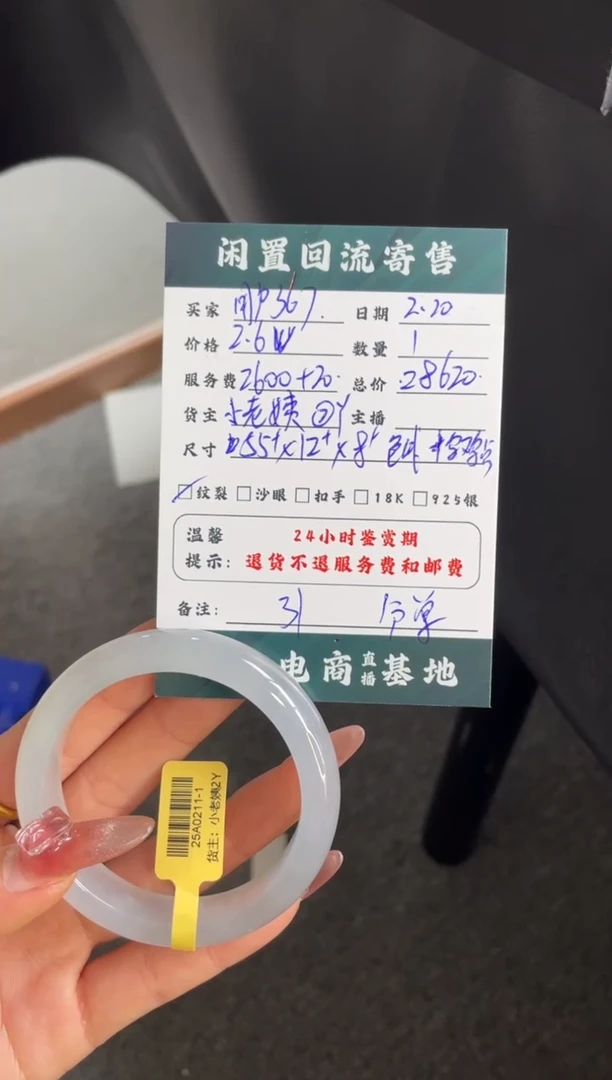 闲置回流寄售
买家 用户367. 日期 2.20
价格 2.6W 数量 1
服务费 2600+20. 总价 28620.
货主 小老姨 2Y 主播
尺寸 55+×12+×8+
纹裂 沙眼 扣手 18K 925银
温馨 24小时鉴赏期
提示: 退货不退服务费和邮费
备注: 31
电商直播基地
25A0211-1
货主: 小老姨2Y